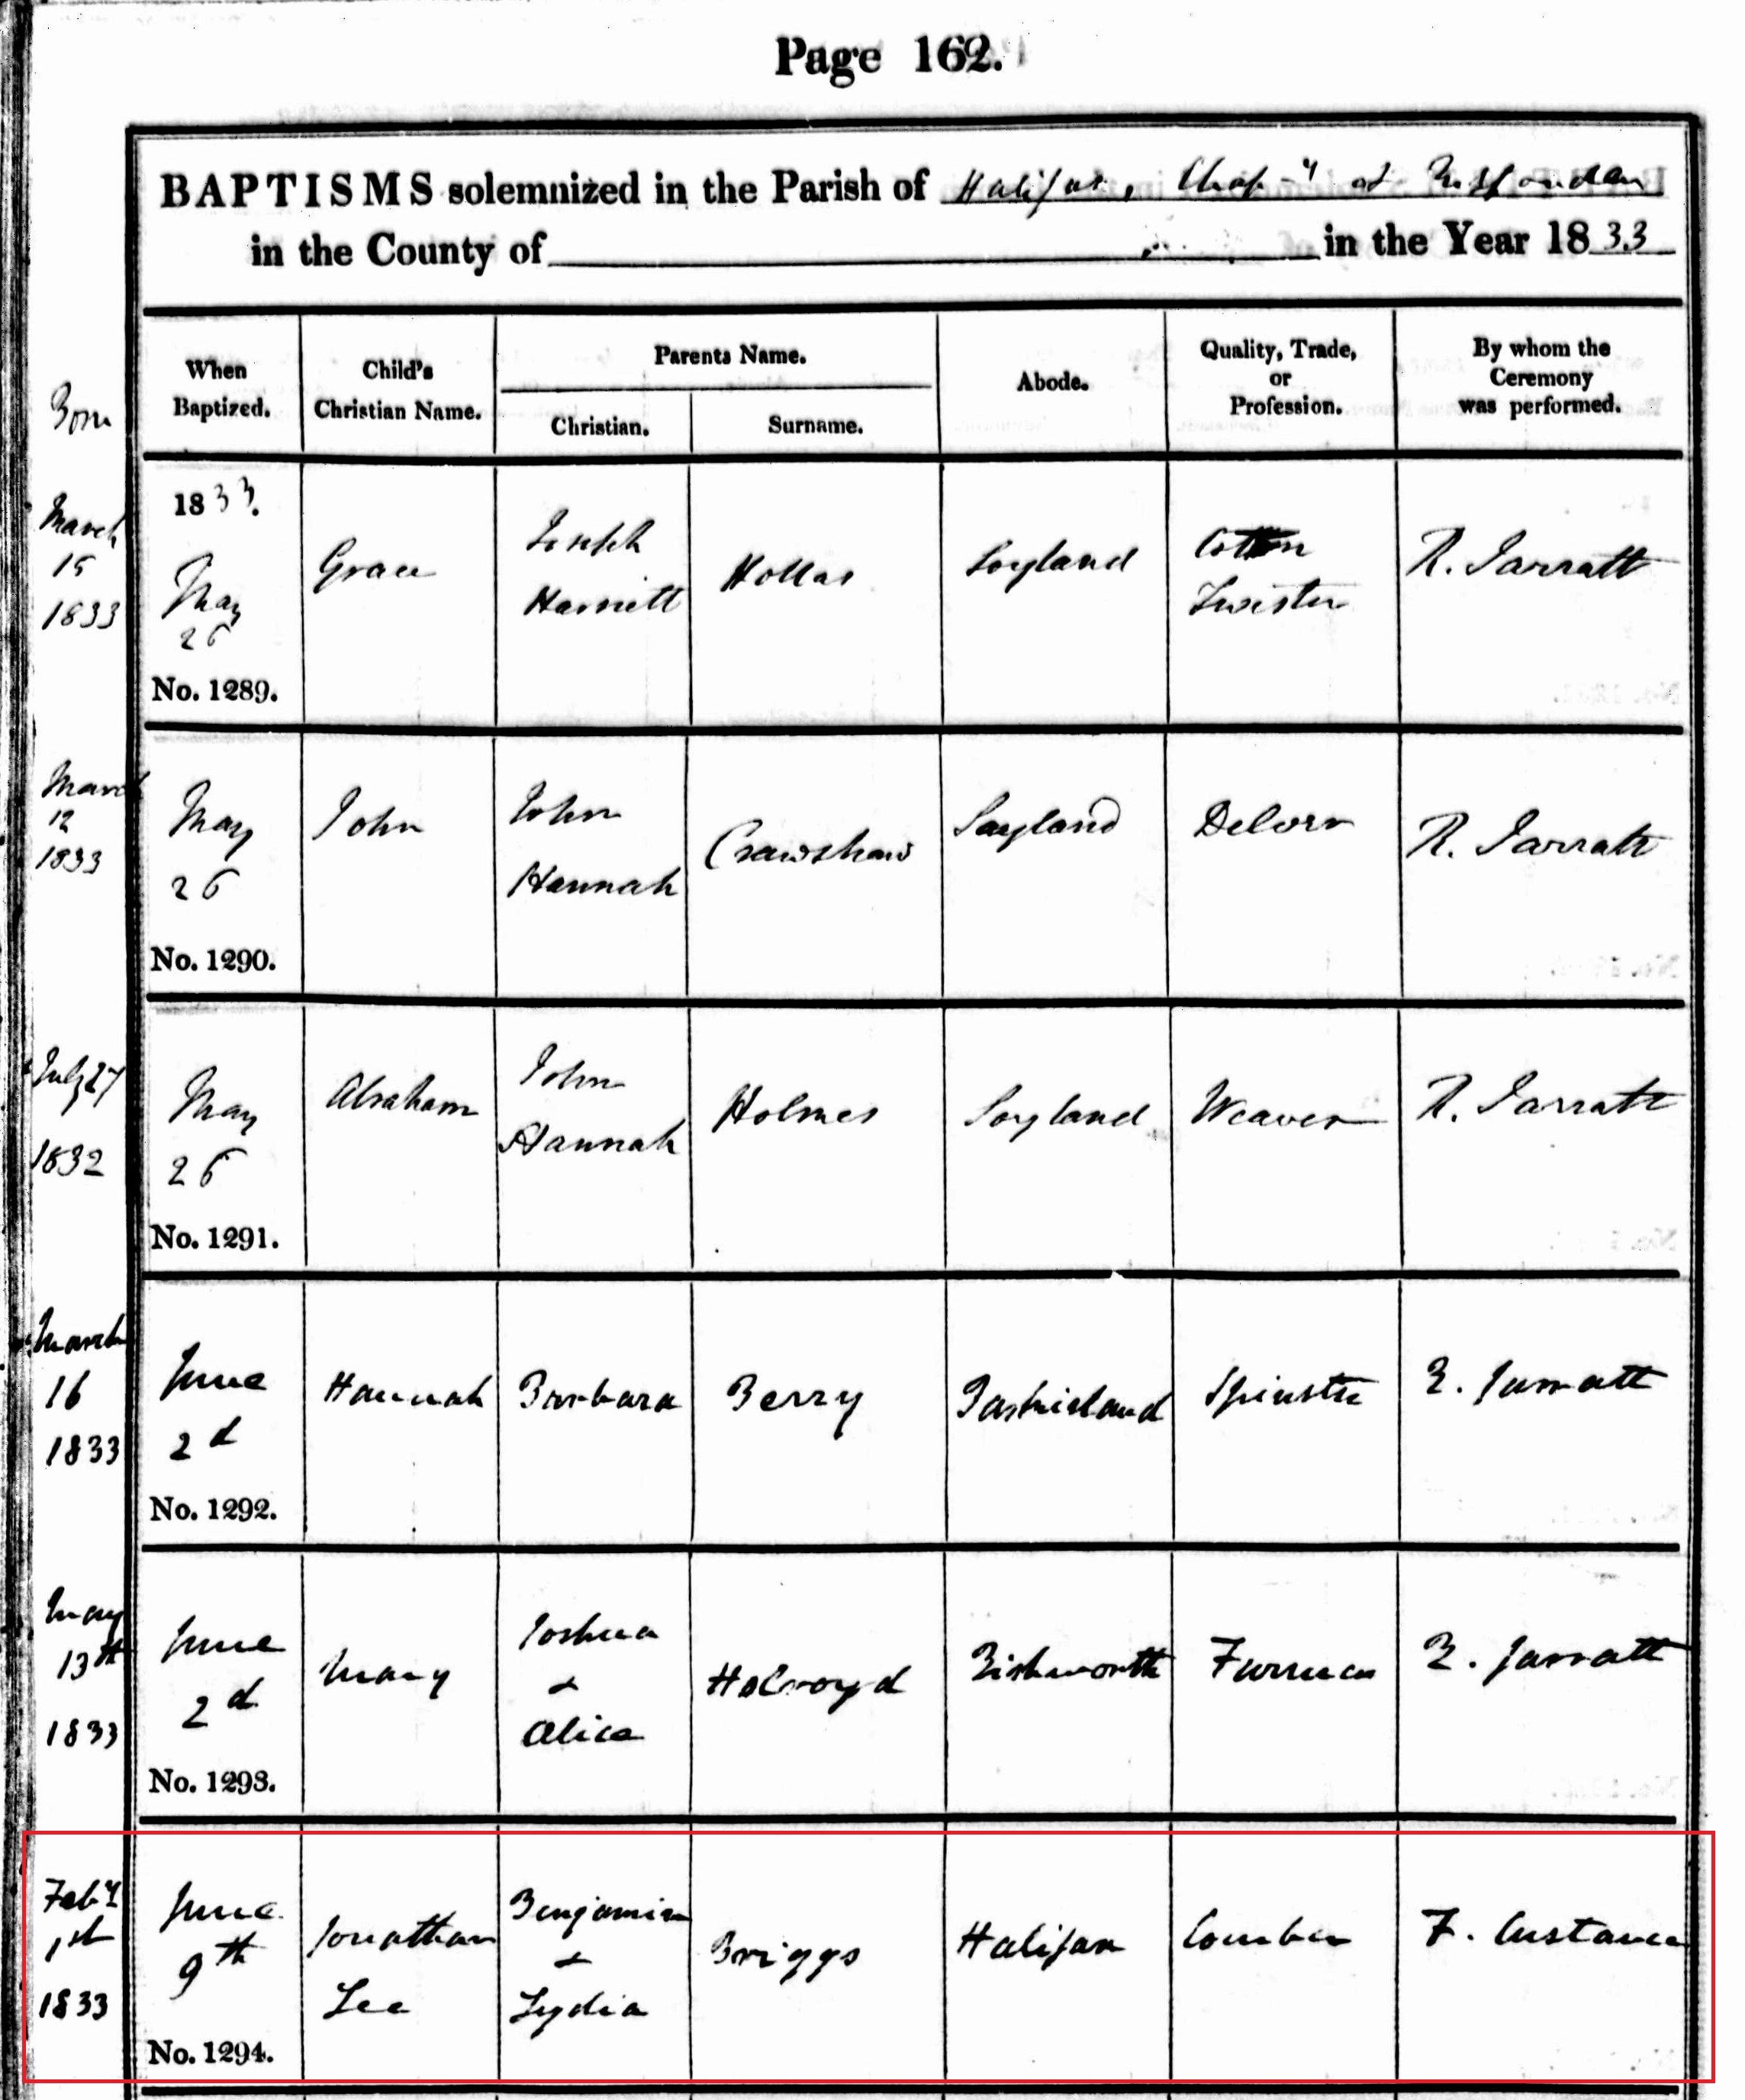 Page 162.
BAPTISMS solemnized in the Parish of Halifax, Chap-y at Rishonden
in the County of in the Year 1833
Born
When Baptized.
Child's Christian Name.
Parents Name.
Christian.
Surname.
Abode.
Quality, Trade, or Profession.
By whom the Ceremony was performed.
March 15 1833
1833.
May 26
No. 1289.
Grace
Joseph
Harriett
Hollas
Soyland
Cotton Twister
R. Jarratt
March 12 1833
May 26
No. 1290.
John
John
Hannah
Crawshaw
Soyland
Delver
R. Jarratt
July 27 1832
May 26
No. 1291.
Abraham
John
Hannah
Holmes
Soyland
Weaver
R. Jarratt
March 16 1833
June 2d
No. 1292.
Hannah
Barbara
Berry
Barkisland
Spinster
R. Jarratt
May 13th 1833
June 2d
No. 1293.
Mary
Joshua
&
Alice
Holroyd
Rishworth
R. Jarratt
Feby 1st 1833
June 9th
No. 1294.
Jonathan
Lee
Benjamin
&
Lydia
Briggs
Halifax
Comber
F. Custance